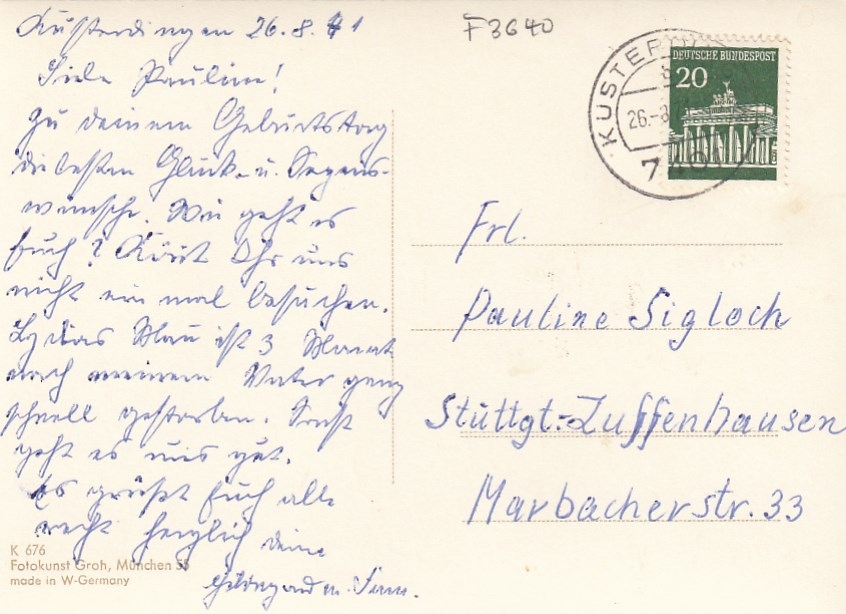 Kusterdingen 26.8.71
Liebe Pauline!
Zu deinem Geburtstag
die besten Glück- u. Segens-
wünsche. Wie geht es
Euch? Könnt Ihr uns
nicht ein mal besuchen.
Lydias Mann ist 3 Monat
nach meinem Vater ganz
schnell gestorben. Sonst
geht es uns gut.
Es grüßt Euch alle
recht herzlich deine
Hildegard m. Fam.
K 676
Fotokunst Groh, München 55
made in W-Germany
F3640
KUSTERDI
26.-8
DEUTSCHE BUNDESPOST
20
Frl.
Pauline Sigloch
Stuttgt.-Zuffenhausen
Marbacherstr. 33